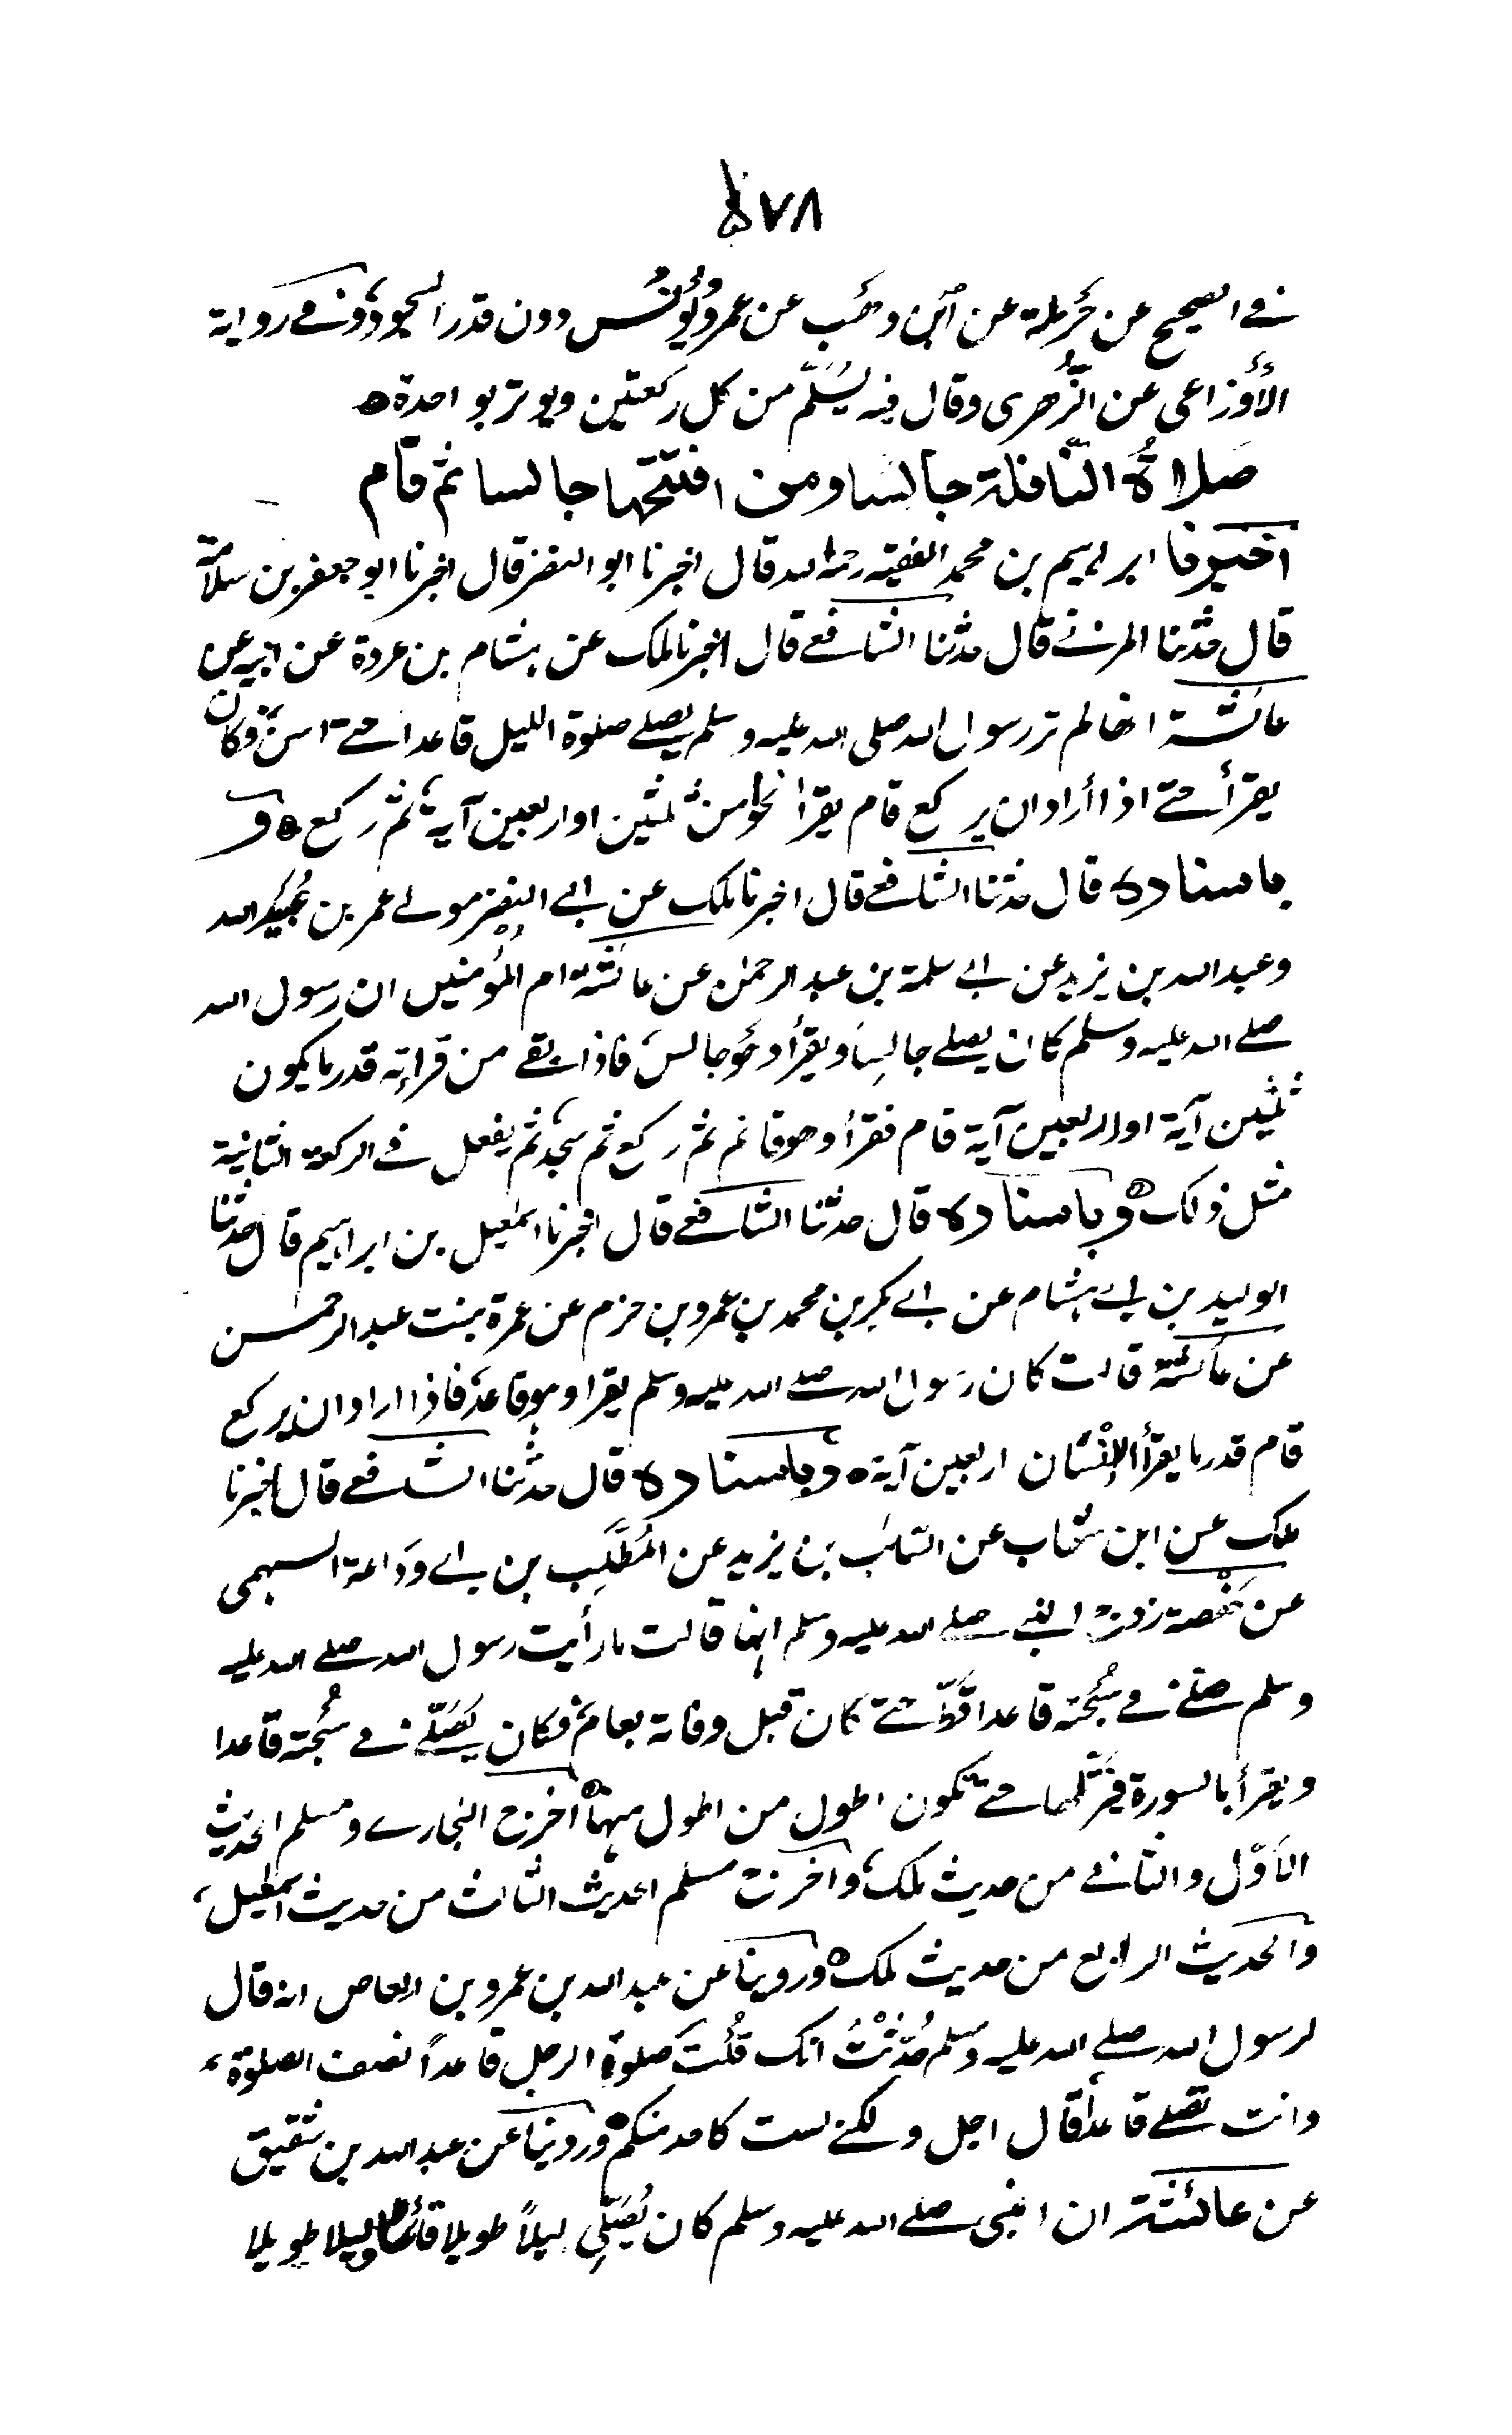 ٥٧٨
في الصحيح عن حَرملة عن ابن وهَب عن عمرو ويُونُس دون قدر السجود، وفي رواية
الأَوْزاعى عن الزُّهرى وقال فيه يُسَلِّم من كل ركعتين ويوتر بواحدة ه
صَلاةُ النّافلة جالسًا ومن افتتحها جالسا ثم قام
اخبرنا ابراهيم بن محمد الفقيه رحمه الله قال اخبرنا ابو النضر قال اخبرنا ابو جعفر بن سلامة
قال حدثنا المزني قال حدثنا الشافعي قال اخبرنا ملك عن هشام بن عروة عن ابيه عن
عائشة انها لم تر رسول الله صلى الله عليه وسلم يصلي صلوة الليل قاعدا حتى اسنّ، وكان
يقرأ حتى اذا أراد ان يركع قام يقرا نحوا من ثلثين او اربعين آية، ثم ركع ه و
باسناده قال حدثنا الشافعي قال اخبرنا ملك عن ابي النضر مولى عمر بن عُبَيد الله
وعبد الله بن يزيد عن ابي سلمة بن عبد الرحمن عن عائشة ام المؤمنين ان رسول الله
صلى الله عليه وسلم كان يصلي جالسًا ويقرأ وهَو جالس، فاذا بقى من قراءته قدر ما يكون
ثلثين آية او اربعين آية قام فقرأ وهو قائم ثم ركع ثم سجد، ثم يفعل في الركعة الثانية
مثل ذلك ه وباسناده قال حدثنا الشافعي قال اخبرنا اسمعيل بن ابراهيم قال حدثنا
الوليد بن ابي هشام عن ابي بكر بن محمد بن عمرو بن حزم عن عمرة بنت عبد الرحمن
عن عائشة قالت كان رَسول الله صلى الله عليه وسلم يقرا وهو قاعد، فاذا اراد ان يركع
قام قدر ما يقرأ الإنْسَان اربعين آية ه وباسناده قال حدثنا الشافعي قال اخبرنا
ملك عن ابن شهاب عن السّائب بن يزيد عن المُطَّلِب بن ابي وَدَاعة السهمى
عن حَفْصة زوج النبي صلى الله عليه وسلم انها قالت ما رأيت رسول الله صلى الله عليه
وسلم صلّى في سُبحته قاعدا قَطّ حتى كان قبل وفاته بعام، فكان يُصَلّي في سُبحته قاعدا
ويقرأ بالسورة فيُرَتّلها حتى تكون اطول من اطول منها ه أخرج البخاري ومسلم الحديث
الأوّل والثاني من حديث ملك، وأخرج مسلم الحديث الثالث من حديث اسمعيل،
والحديث الرابع من حديث ملك ه وروينا عن عبد الله بن عمرو بن العاص انه قال
لرسول الله صلى الله عليه وسلم حُدّثْتُ انك قُلْتَ صَلوة الرجل قاعداً نصف الصلوة،
وانت تصلي قاعدا، قال اجل ولكني لست كاحد منكم ه وروينا عن عبد الله بن شقيق
عن عائشة ان النبى صلى الله عليه وسلم كان يُصَلِّي ليلاً طويلا قائما وليلا طويلا